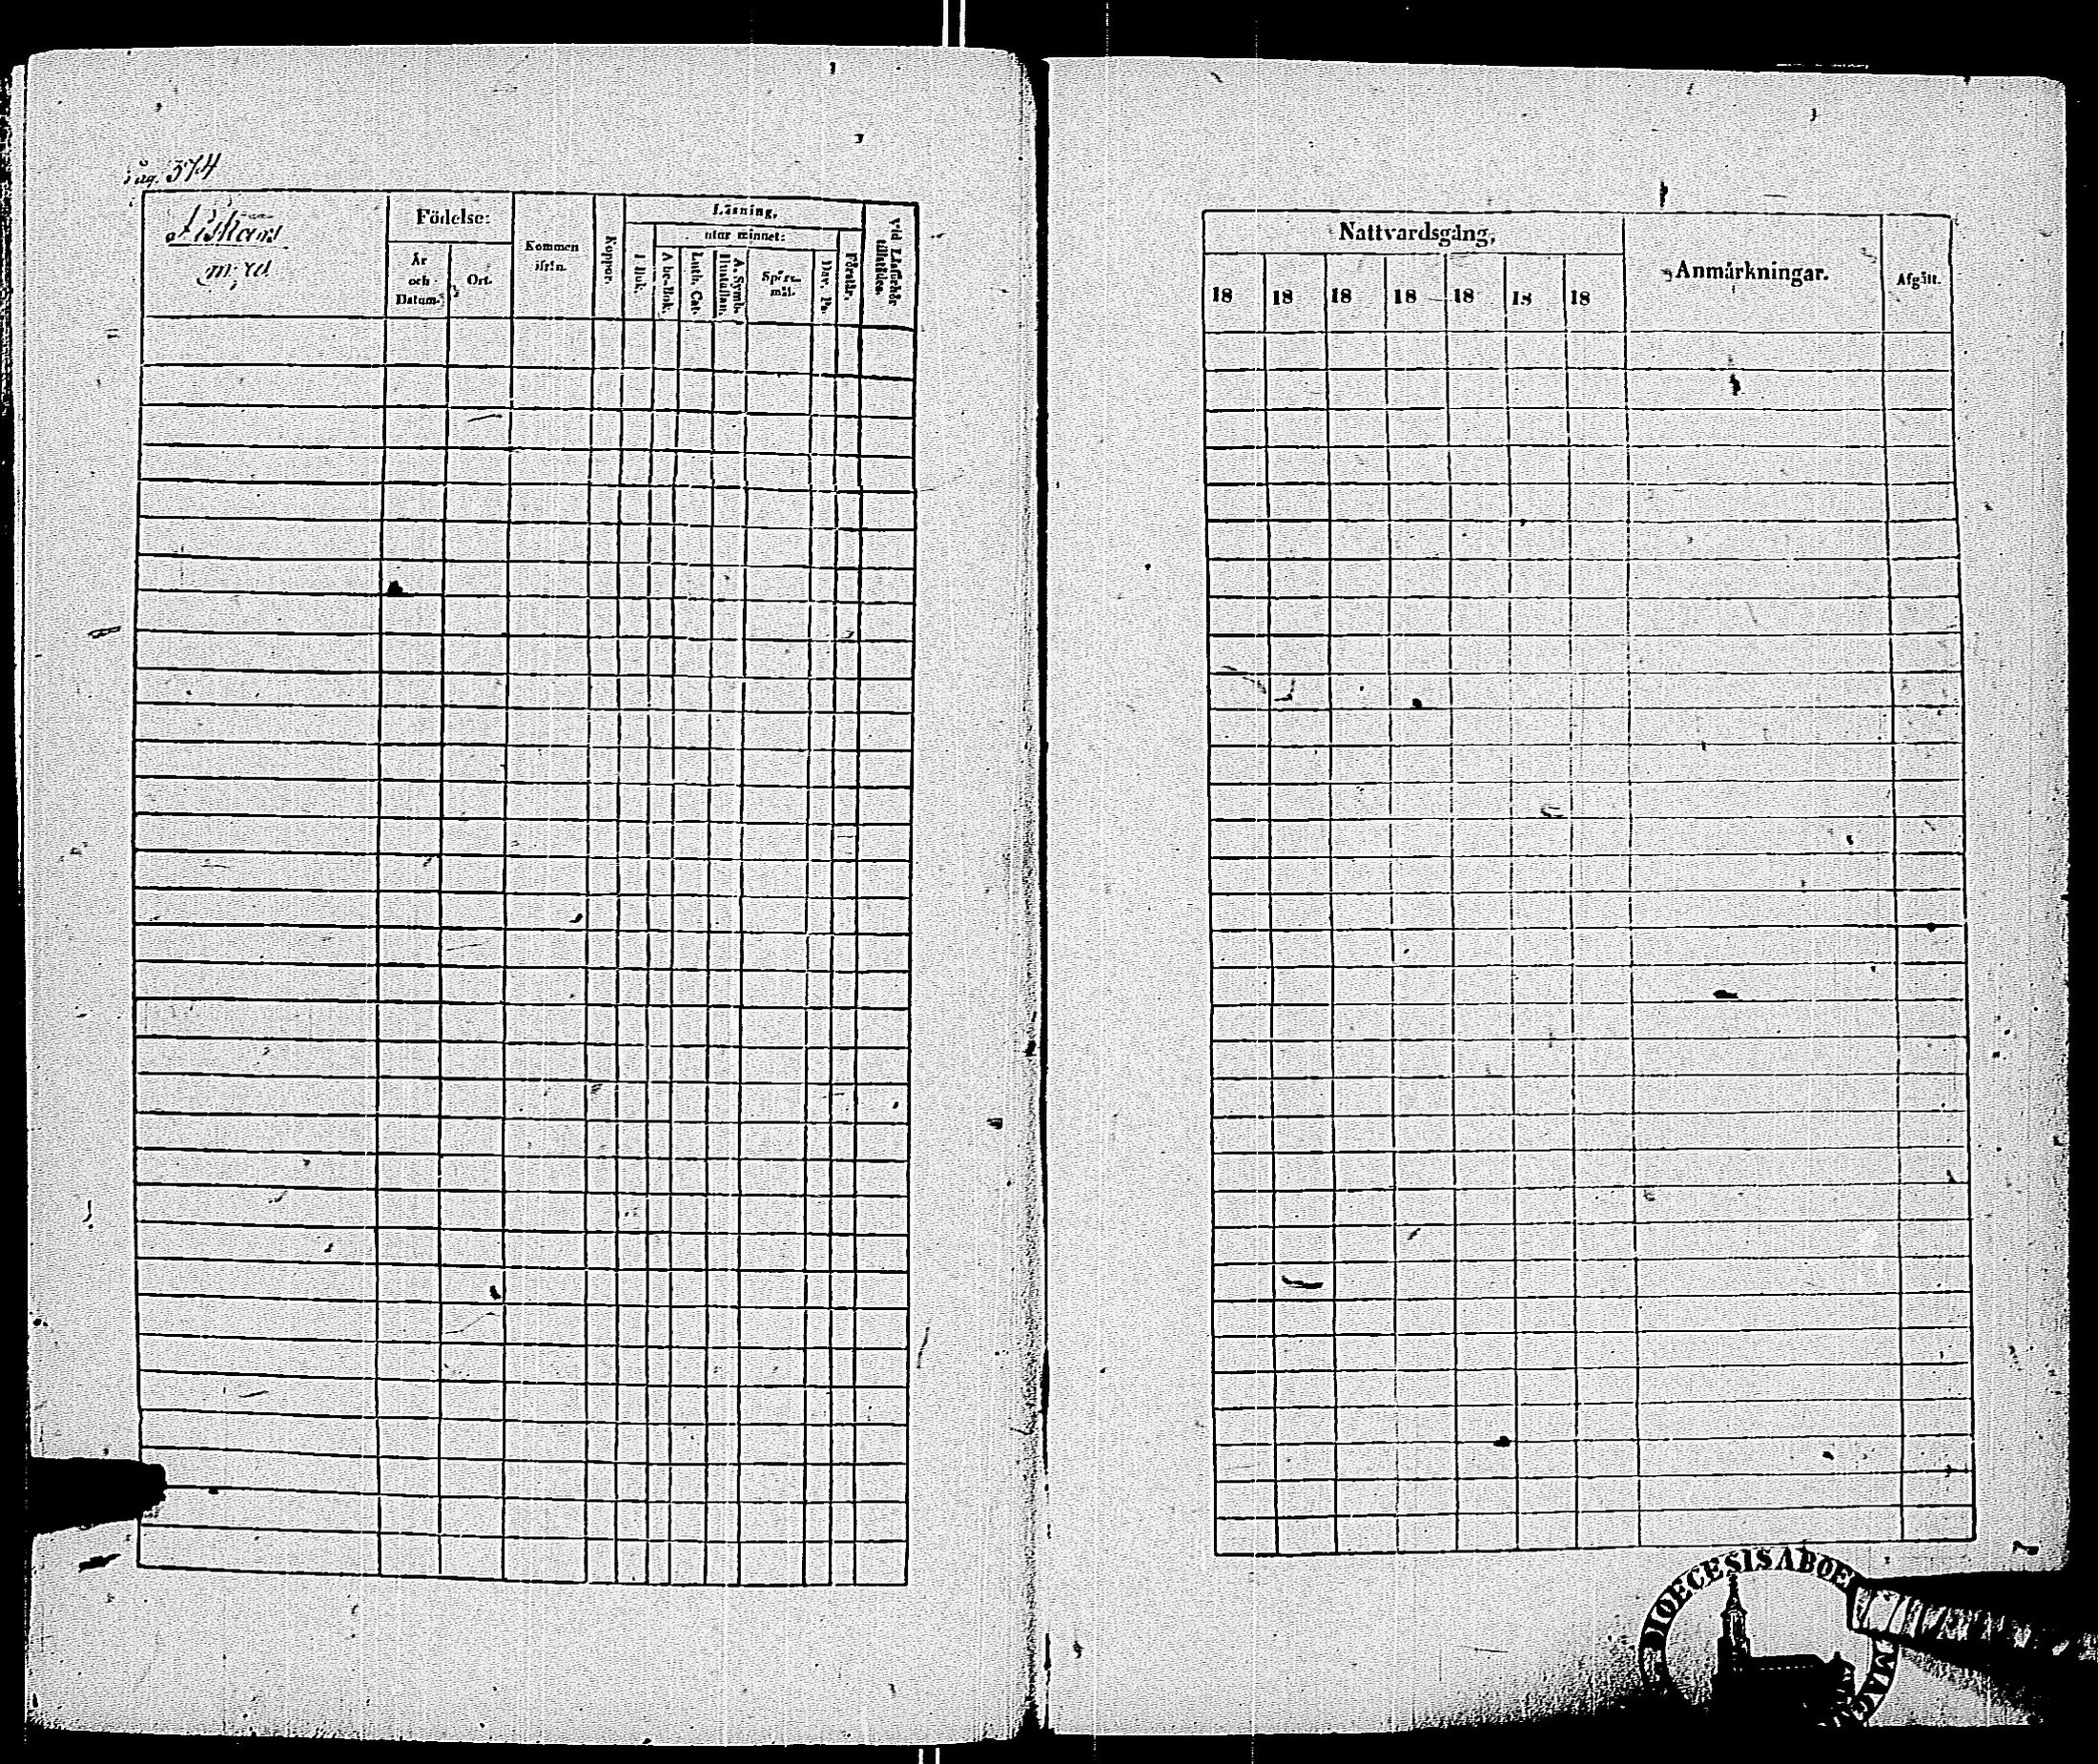 pag. 374
Fiskars
Födelse:
År
och
Datum.
Ort.
Kommen
ifrån.
Koppor.
Läsning,
utur minnet:
I Bok.
A be-Bok.
Luth. Cat.
A. Symb.
Hustaflan.
Spörs-
mål.
Dav. Ps.
Förstår.
Vid Läsförhör
tillstädes.
Nattvardsgång,
18 18 18 18 18 18 18
Anmärkningar.
Afgått.
DIOECESIS ABOE
MAG